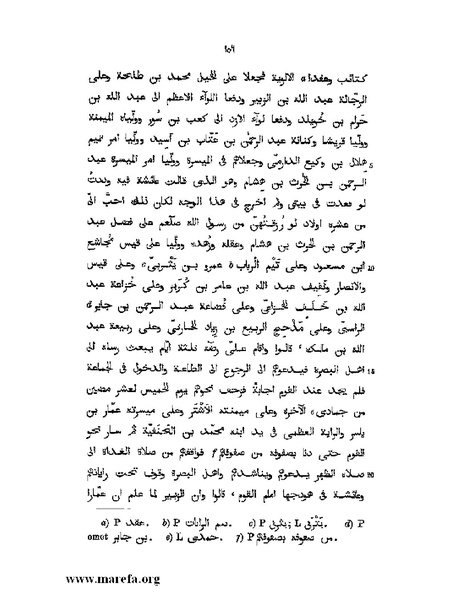 ١٥٦
كتائب وعقدا الالوية فجعلا على الخيل محمد بن طلحة وعلى
الرجّالة عبد الله بن الزبير ودفعا اللوآء الاعظم الى عبد الله بن
حرام بن خُويلد ودفعا لوآء الازد الى كعب بن سُور وولّياه الميمنة
وولّيا قريشا وكنانة عبد الرحمٰن بن عتّاب بن أَسِيد وولّيا امر تميم
5 هلال بن وكيع الدارمىّ وجعلاه فى الميسرة وولّيا امر الميسرة عبد
الرحمن بن الحٰرث بن هشام وهو الذى قالت عائشة فيه وددتُ
لو قعدت فى بيتى ولم اخرج فى هذا الوجه لكان ذلك احبّ الىّ
من عشرة اولاد لو رُزقتهنّ من رسول الله صلّعم على فضل عبد
الرحمن بن الحٰرث بن هشام وعقله وزهده وولّيا على قيس مُجاشع
10 ابن مسعود وعلى تَيْم الرِباب عمرو بن يَثْرِبىّ وعلى قيس
والانصار وثقيف عبد الله بن عامر بن كُرَيز وعلى خُزاعة عبد
الله بن خَلَف الخزاعىّ وعلى قُضاعة عبد الرحمن بن جابر
الراسبى وعلى مَذْحِج الربيع بن زياد الحارثى وعلى ربيعة عبد
الله بن مالك، قالوا واقام علىّ رضّه ثلثة ايّام يبعث رسله الى
15 اهل البصرة فيدعوهم الى الرجوع الى الطاعة والدخول فى الجماعة
فلم يجد عند القوم اجابةً فزحف نحوهم يوم الخميس لعشر مضين
من جمادى الآخرة وعلى ميمنته الأَشْتَر وعلى ميسرته عمّار بن
ياسر والراية العظمى فى يد ابنه محمّد بن الحَنَفيّة ثم سار نحو
القوم حتى دنا بصفوفه من صفوفهم فواقفهم من صلاة الغداة الى
20 صلاة الظهر يدعوهم ويناشدهم واهل البصرة وقوف تحت راياتهم
وعائشة فى هودجها امام القوم، قالوا وان الزبير لما علم ان عمّارا
a) P عقد. b) P بسم الرايات. c) P يثرى; L يَثْرَى. d) P
omet بن جابر. e) L حمدى. f) P من صفوفه بصفوفهم.
www.marefa.org